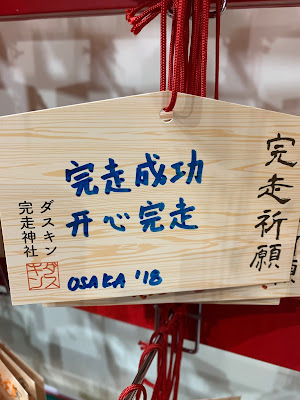 完走祈願
完走成功
开心完走
OSAKA '18
ダスキン
完走神社
ダス
キン